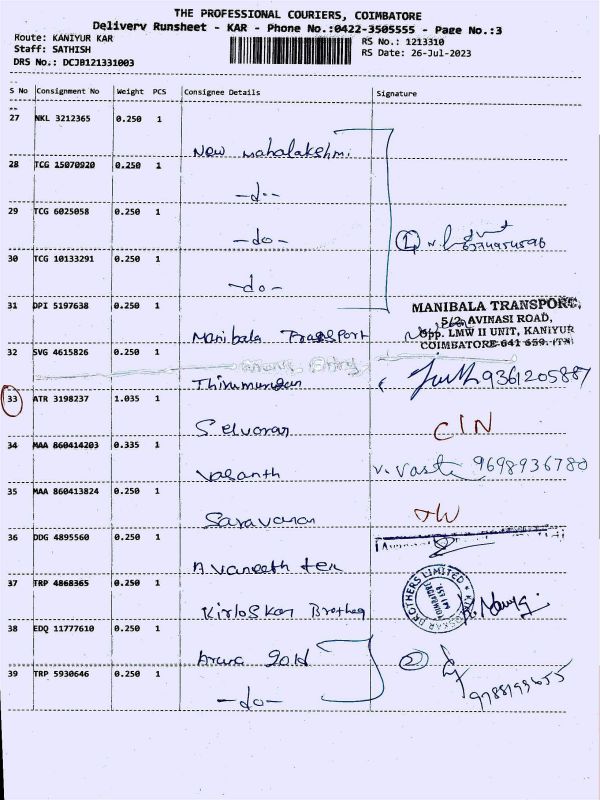 THE PROFESSIONAL COURIERS, COIMBATORE
Delivery Runsheet - KAR - Phone No.:0422-3505555 - Page No.:3
Route: KANIYUR KAR
RS No.: 1213310
Staff: SATHISH
RS Date: 26-Jul-2023
DRS No.: DCJB121331003
S No Consignment No Weight PCS Consignee Details Signature
27 NKL 3212365 0.250 1
New Mahalakshmi
28 TCG 15070920 0.250 1
-d--
29 TCG 6025058 0.250 1
-do- 1
30 TCG 10133291 0.250 1
-do-
31 DPI 5197638 0.250 1
MANIBALA TRANSPORT,
5/2 AVINASI ROAD,
Manibala Transport
Opp. LMW II UNIT, KANIYUR
COIMBATORE-641 659. (TN)
32 SVG 4615826 0.250 1
Thirumurugan 9361205887
33 ATR 3198237 1.035 1
Selvaraj CIN
34 MAA 860414203 0.335 1
Vasanth V. Vast 9698936780
35 MAA 860413824 0.250 1
Saravanan
36 DDG 4895560 0.250 1
Avaneeth tex
37 TRP 4868365 0.250 1
Kirloskar Brothers
KIRLOSKAR BROTHERS LIMITED
38 EDQ 11777610 0.250 1
Gold 2
39 TRP 5930646 0.250 1
-do- 9788199655